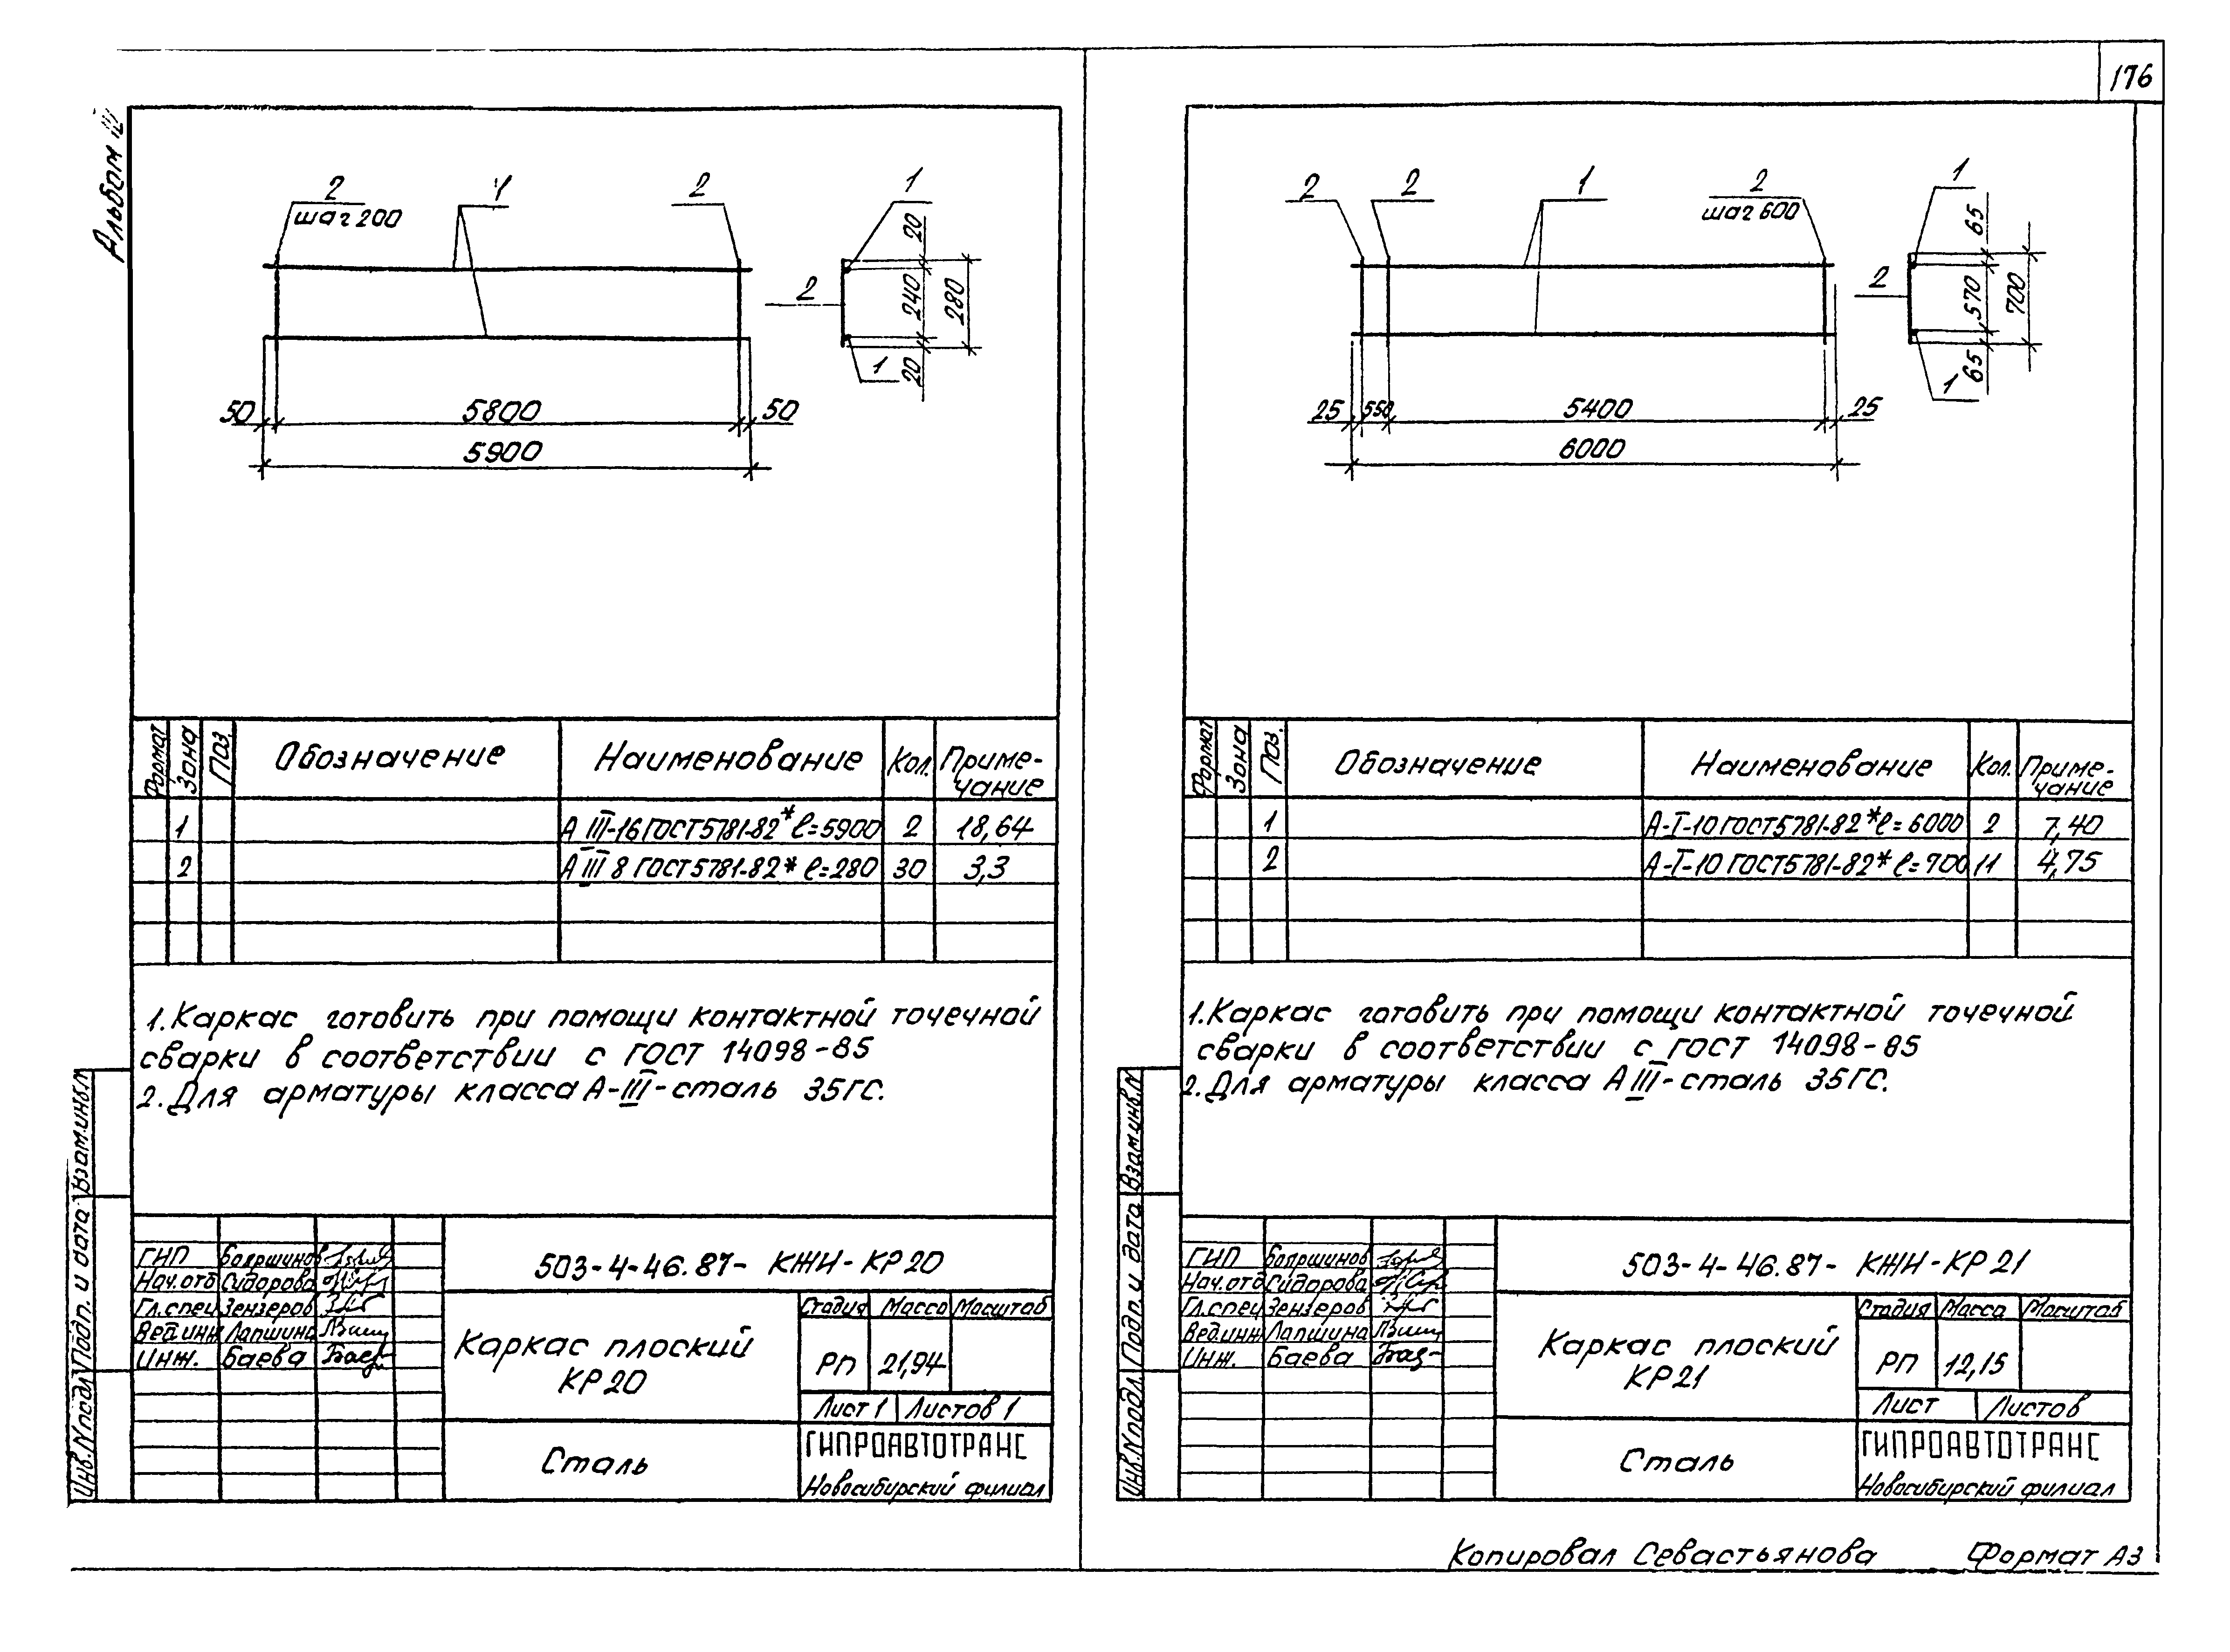 176
Альбом III
2
шаг 200
1
2
1
20
240
280
20
2
1
50
5800
50
5900
Формат
Зона
Поз.
Обозначение
Наименование
Кол.
Приме-
чание
1 А III-16 ГОСТ 5781-82* ℓ=5900 2 18,64
2 А III 8 ГОСТ 5781-82* ℓ=280 30 3,3
1. Каркас готовить при помощи контактной точечной
сварки в соответствии с ГОСТ 14098-85
2. Для арматуры класса А-III-сталь 35ГС.
Взам.инв.N
Подп. и дата
Инв.N подл.
ГИП Бояршинов
Нач.отд Сидорова
Гл.спец Зензеров
Вед.инж Лапшина
Инж. Баева
503-4-46.87- КЖИ-КР20
Каркас плоский
КР20
Стадия Масса Масштаб
РП 21,94
Лист 1 Листов 1
Сталь
ГИПРОАВТОТРАНС
Новосибирский филиал
2
2
1
2
шаг 600
1
65
570
700
65
2
1
25
550
5400
25
6000
Формат
Зона
Поз.
Обозначение
Наименование
Кол.
Приме-
чание
1 А-I-10 ГОСТ 5781-82* ℓ=6000 2 7,40
2 А-I-10 ГОСТ 5781-82* ℓ=700 11 4,75
1. Каркас готовить при помощи контактной точечной
сварки в соответствии с ГОСТ 14098-85
2. Для арматуры класса А III-сталь 35ГС.
Взам.инв.N
Подп. и дата
Инв.N подл.
ГИП Бояршинов
Нач.отд Сидорова
Гл.спец Зензеров
Вед.инж Лапшина
Инж. Баева
503-4-46.87- КЖИ-КР21
Каркас плоский
КР21
Стадия Масса Масштаб
РП 12,15
Лист Листов
Сталь
ГИПРОАВТОТРАНС
Новосибирский филиал
Копировал Севастьянова Формат А3